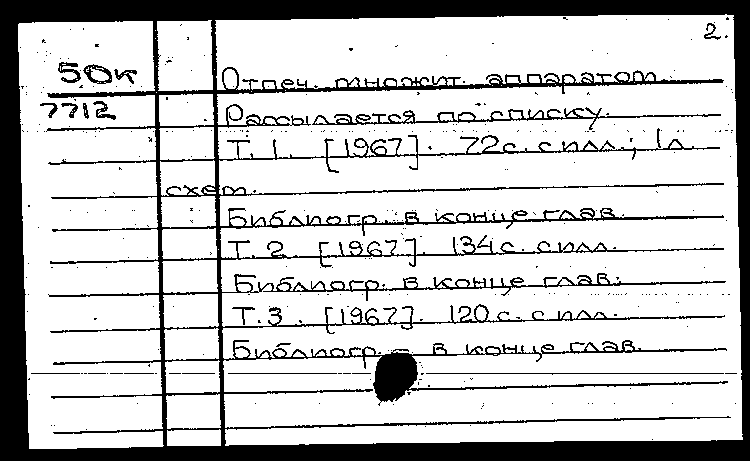 2.
50к
7712
Отпеч. множит. аппаратом.
Рассылается по списку.
Т. 1. [1967]. 72 с. с илл.; 1 л.
схем.
Библиогр. в конце глав.
Т. 2. [1967]. 134 с. с илл.
Библиогр. в конце глав.
Т. 3. [1967]. 120 с. с илл.
Библиогр. – в конце глав.